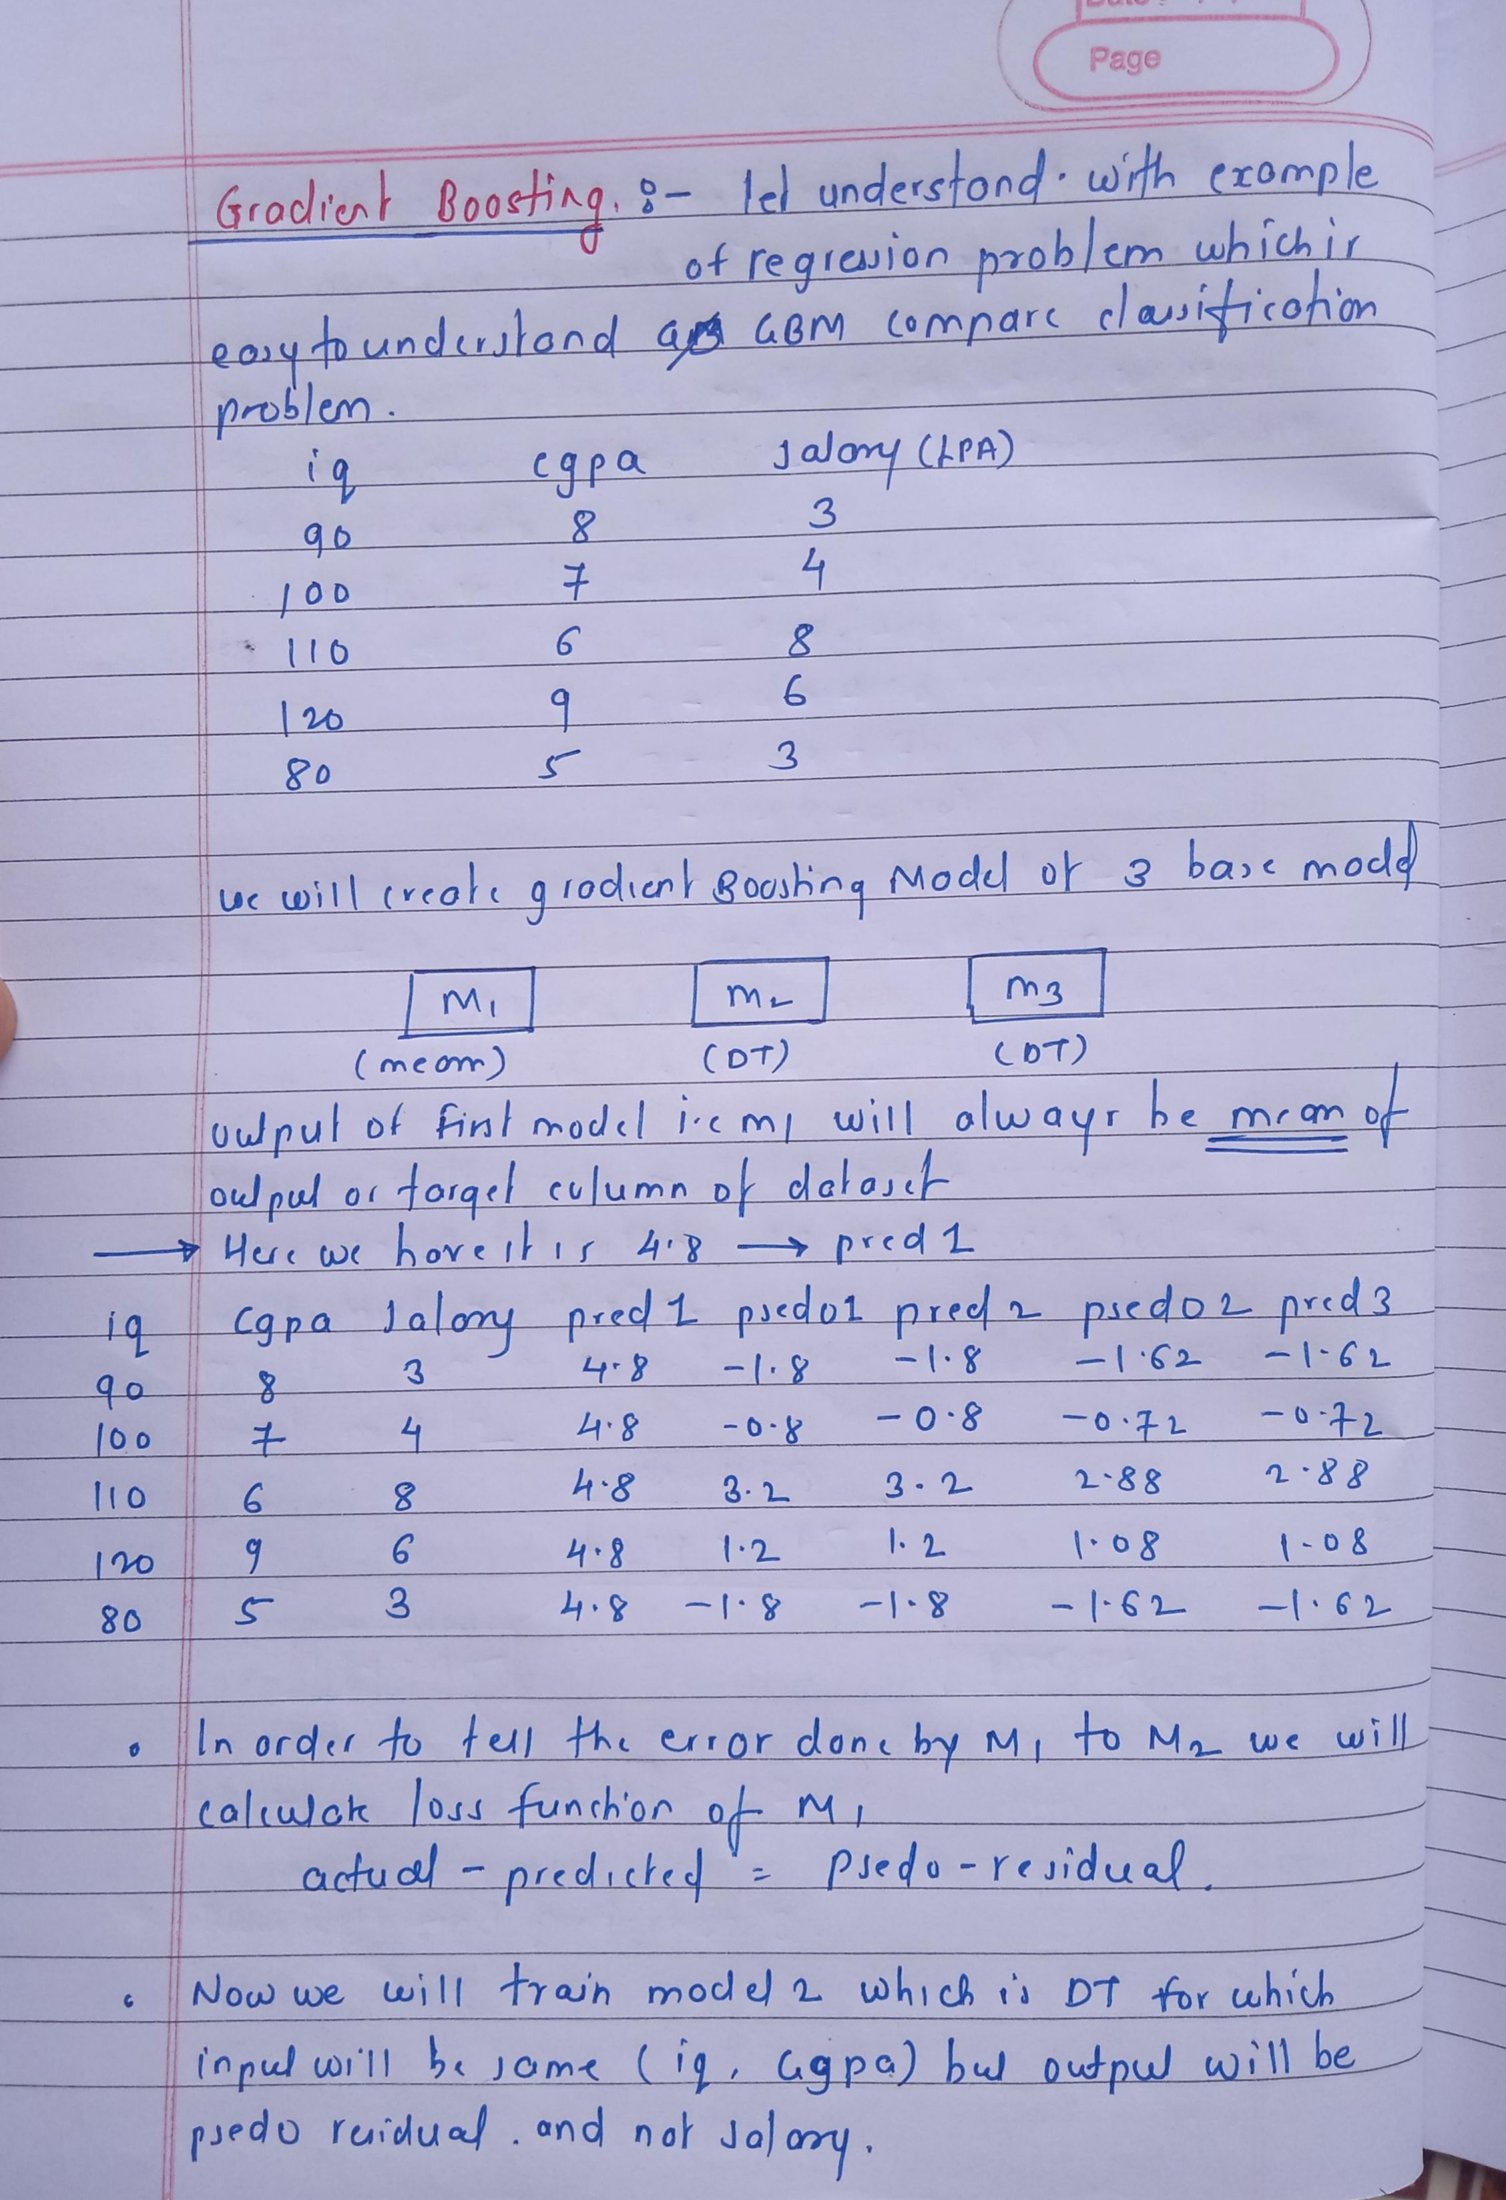 Page
Gradient Boosting. :- let understand. with example
of regression problem which is
easy to understand GBM compare classification
problem.
iq cgpa salary (LPA)
90 8 3
100 7 4
110 6 8
120 9 6
80 5 3
we will create gradient Boosting Model of 3 base model
M1 m2 m3
(mean) (DT) (DT)
output of first model i.e m1 will always be mean of
output or target column of dataset
→ Here we have it is 4.8 → pred 1
iq cgpa salary pred 1 psedo1 pred 2 psedo 2 pred 3
90 8 3 4.8 -1.8 -1.8 -1.62 -1.62
100 7 4 4.8 -0.8 -0.8 -0.72 -0.72
110 6 8 4.8 3.2 3.2 2.88 2.88
120 9 6 4.8 1.2 1.2 1.08 1.08
80 5 3 4.8 -1.8 -1.8 -1.62 -1.62
• In order to tell the error done by M1 to M2 we will
calculate loss function of M1
actual - predicted = Psedo-residual.
• Now we will train model 2 which is DT for which
input will be same (iq, cgpa) but output will be
psedo residual. and not salary.